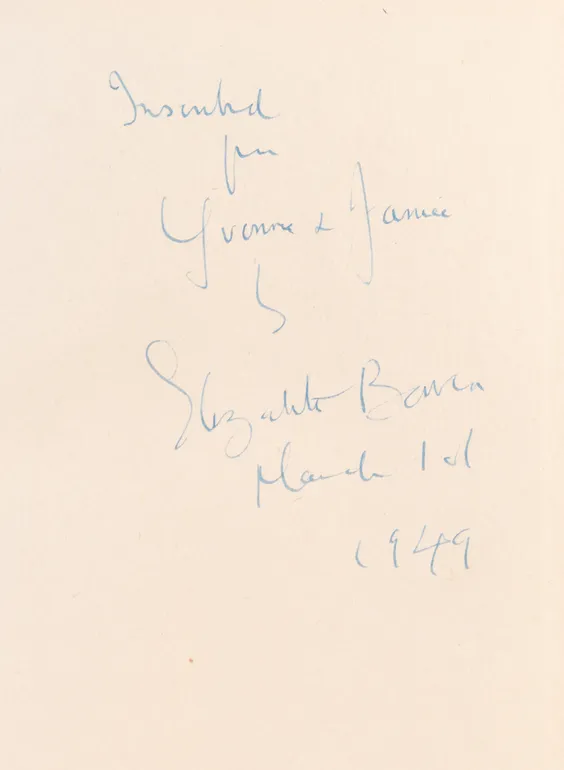 Inscribed
for
Yvonne & Jamie
by
Elizabeth Bowen
March 1st
1949